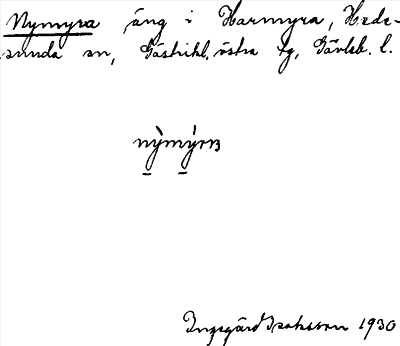 Nymyra äng i Harmyra, Hede-
sunda sn, Gästrikl. östra tg, Gävleb. l.
nỳmýrɐ
Ingegärd Isaksson 1930